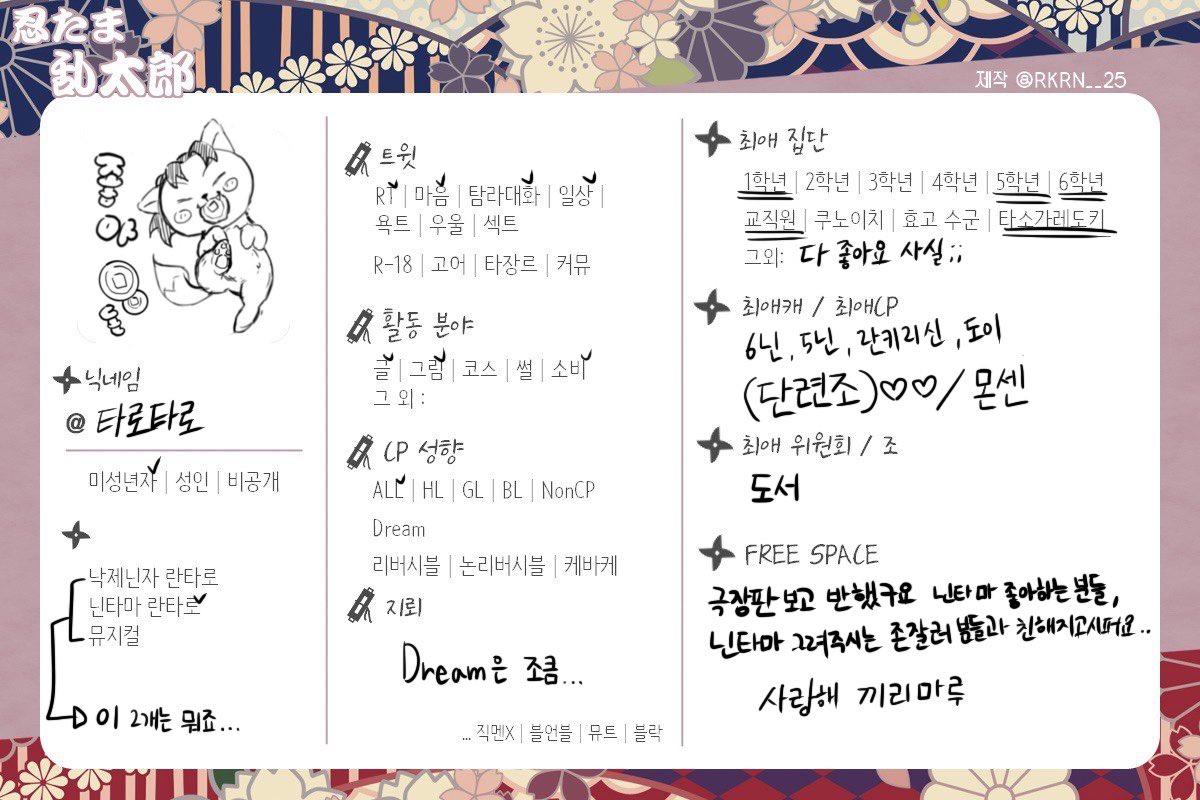 忍たま
乱太郎
제작 @RKRN__25
좋아
닉네임
@ 타로타로
미성년자 | 성인 | 비공개
낙제닌자 란타로
닌타마 란타로
뮤지컬
이 2개는 뭐죠...
트윗
RT | 마음 | 탐라대화 | 일상 |
욕트 | 우울 | 섹트
R-18 | 고어 | 타장르 | 커뮤
활동 분야
글 | 그림 | 코스 | 썰 | 소비
그 외 :
CP 성향
ALL | HL | GL | BL | NonCP
Dream
리버시블 | 논리버시블 | 케바케
지뢰
Dream은 조금...
... 직멘X | 블언블 | 뮤트 | 블락
최애 집단
1학년 | 2학년 | 3학년 | 4학년 | 5학년 | 6학년
교직원 | 쿠노이치 | 효고 수군 | 타소가레도키
그외: 다 좋아요 사실;;
최애캐 / 최애CP
6닌, 5닌, 란키리신, 도이
(단련조)♡♡/ 몬센
최애 위원회 / 조
도서
FREE SPACE
극장판 보고 반했구요 닌타마 좋아하는 분들,
닌타마 그려주시는 존잘러 분들과 친해지고시퍼요..
사랑해 끼리마루